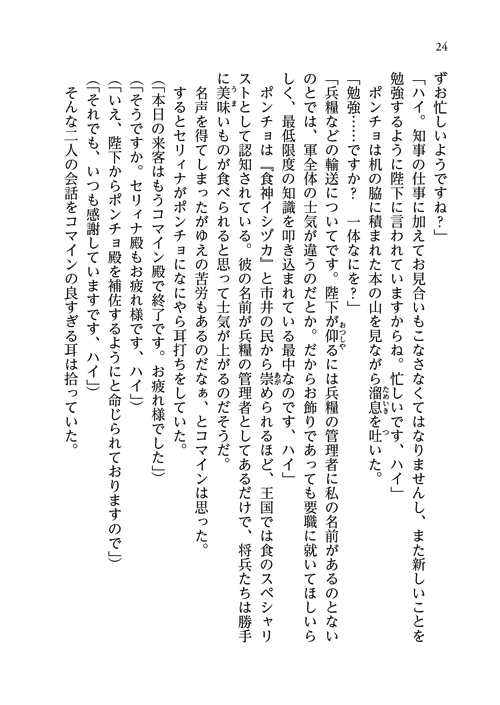 24
ずお忙しいようですね？」
「ハイ。知事の仕事に加えてお見合いもこなさなくてはなりませんし、また新しいことを
勉強するように陛下に言われていますからね。忙しいです、ハイ」
ポンチョは机の脇に積まれた本の山を見ながら溜息を吐いた。
「勉強……ですか？　一体なにを？」
「兵糧などの輸送についてです。陛下が仰るには兵糧の管理者に私の名前があるのとない
のとでは、軍全体の士気が違うのだとか。だからお飾りであっても要職に就いてほしいら
しく、最低限度の知識を叩き込まれている最中なのです、ハイ」
ポンチョは『食神イシヅカ』と市井の民から崇められるほど、王国では食のスペシャリ
ストとして認知されている。彼の名前が兵糧の管理者としてあるだけで、将兵たちは勝手
に美味いものが食べられると思って士気が上がるのだそうだ。
名声を得てしまったがゆえの苦労もあるのだなぁ、とコマインは思った。
するとセリィナがポンチョになにやら耳打ちをしていた。
（「本日の来客はもうコマイン殿で終了です。お疲れ様でした」）
（「そうですか。セリィナ殿もお疲れ様です、ハイ」）
（「いえ、陛下からポンチョ殿を補佐するようにと命じられておりますので」）
（「それでも、いつも感謝していますです、ハイ」）
そんな二人の会話をコマインの良すぎる耳は拾っていた。